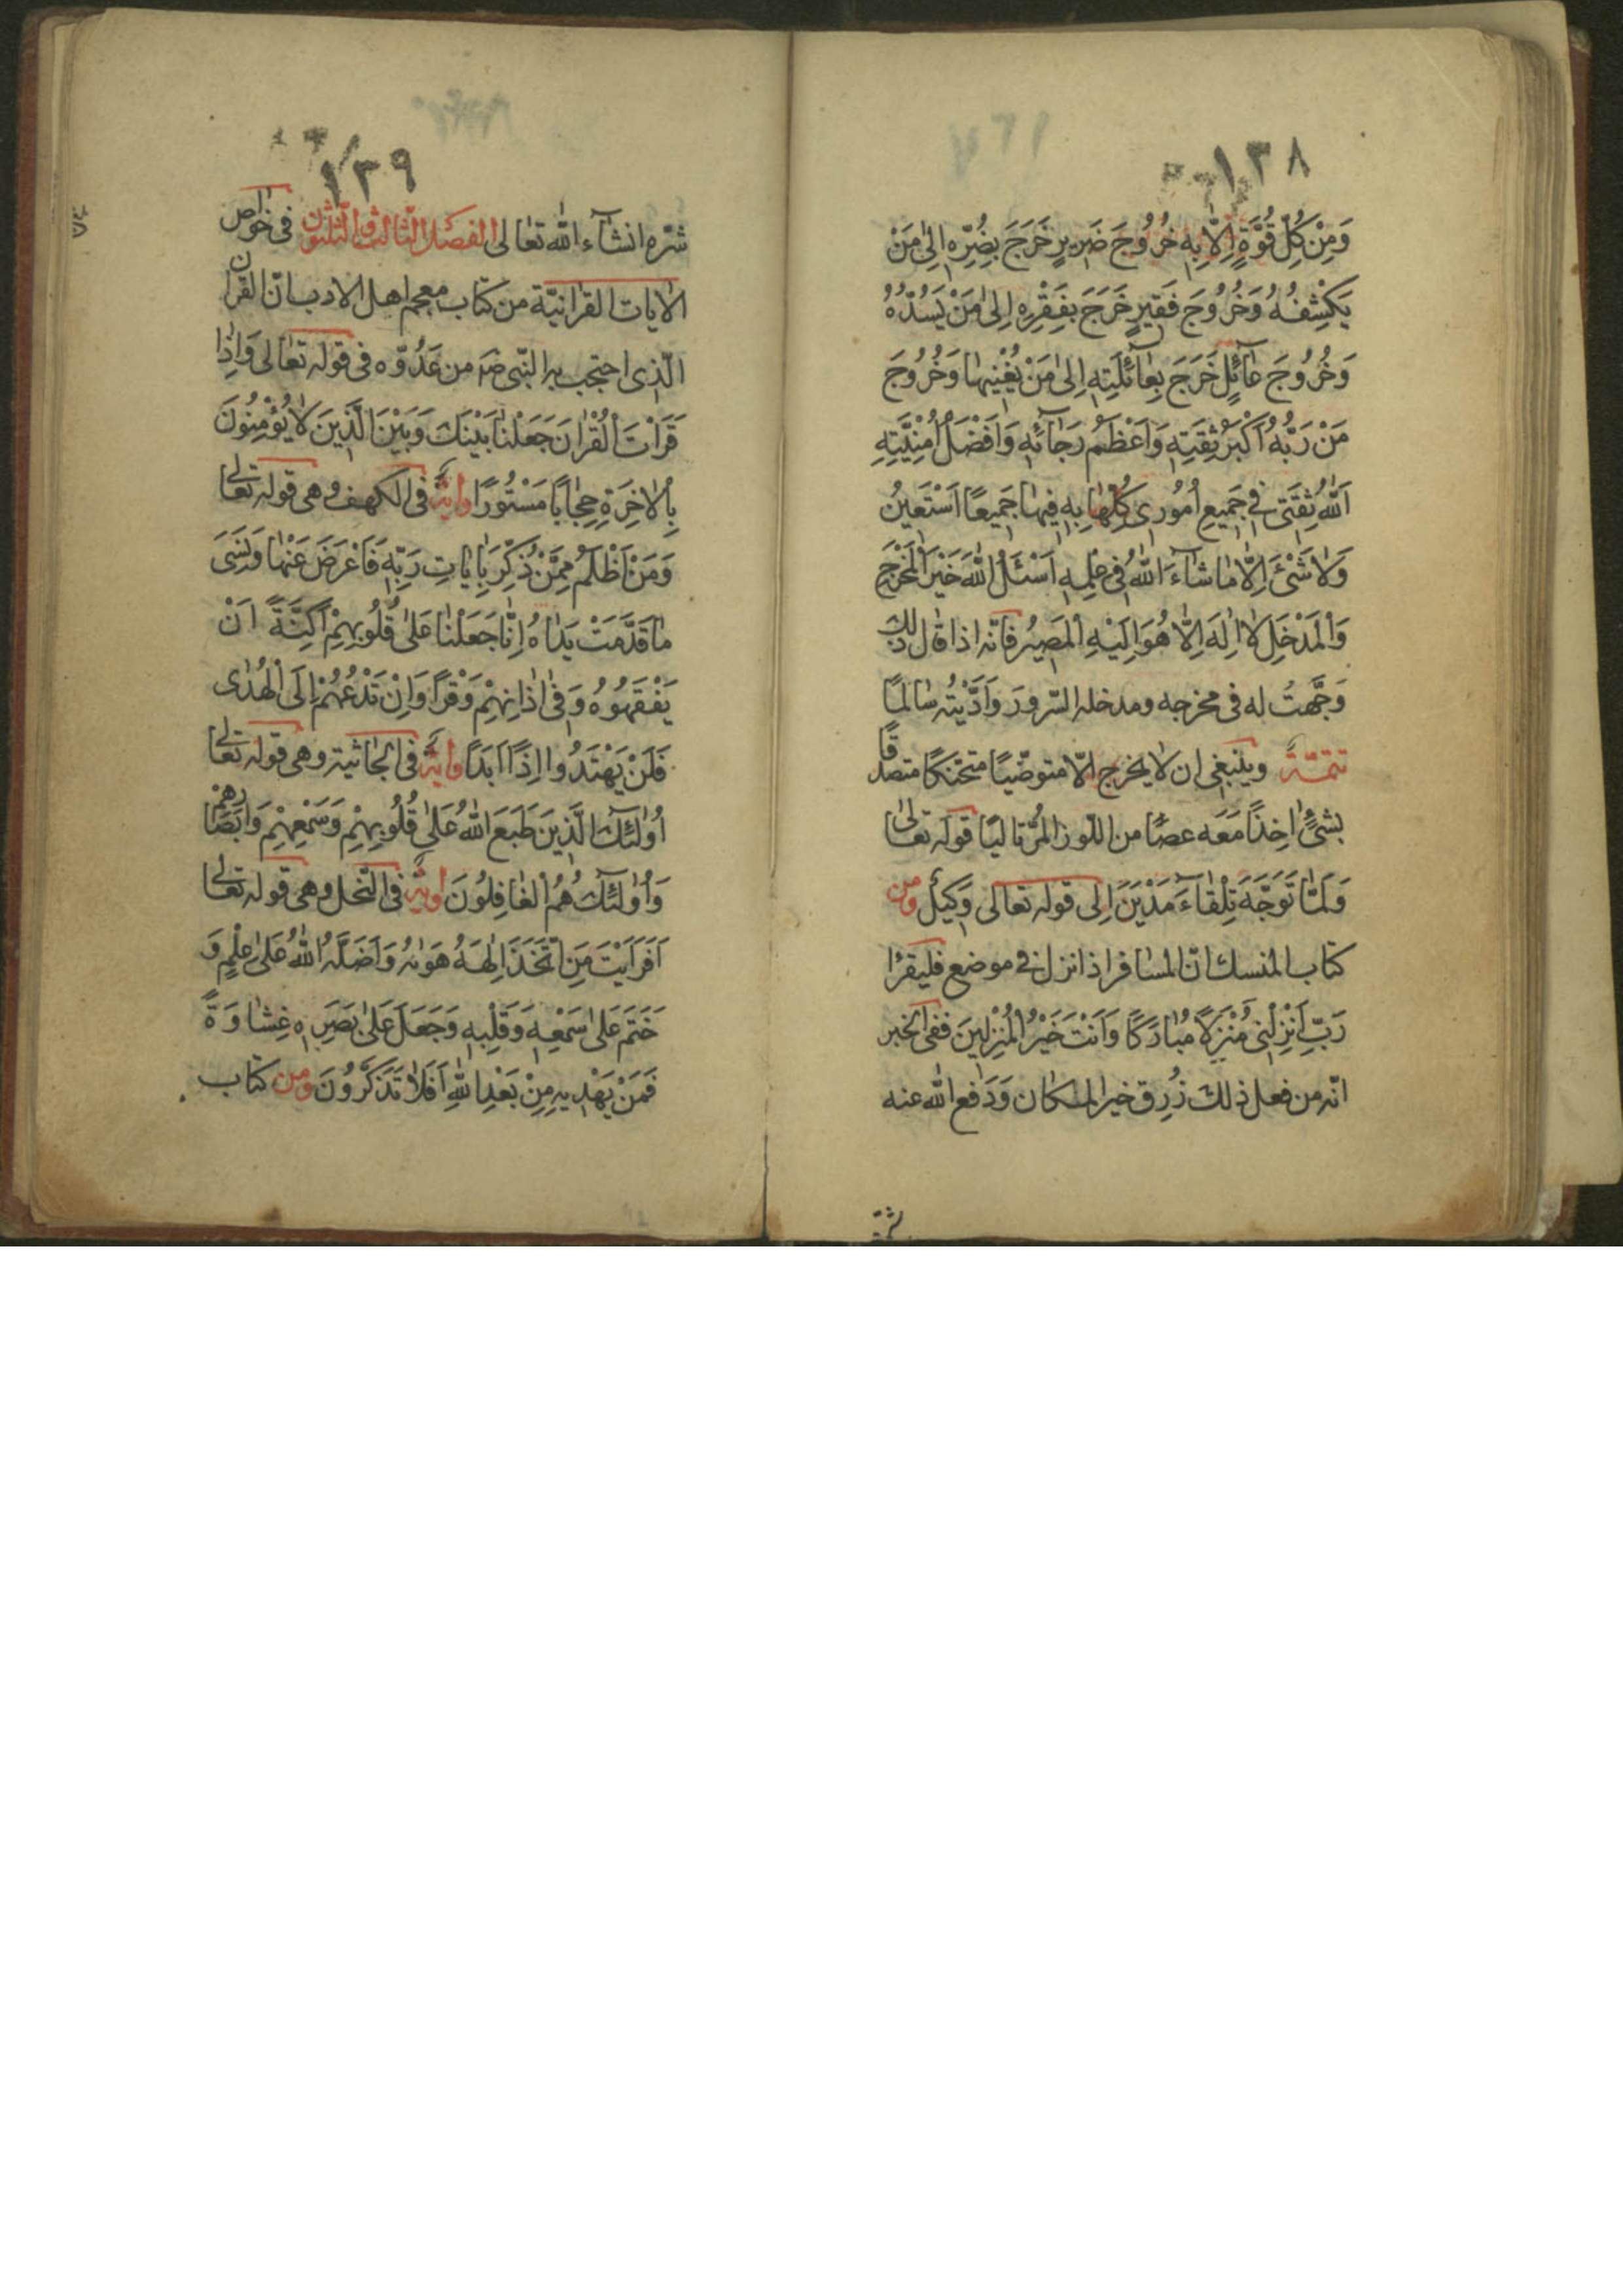 ١٣٨
وَمِنْ كُلِّ قُوَّةٍ اِلّٰا بِهِ خُرُوجَ ضَرِيرٍ خَرَجَ بِضُرِّهِ اِلىٰ مَنْ
يَكْشِفُهُ وَخُرُوجَ فَقِيرٍ خَرَجَ بِفَقْرِهِ اِلىٰ مَنْ يَسُدُّهُ
وَخُرُوجَ عٰائِلٍ خَرَجَ بِعٰائِلَتِهِ اِلىٰ مَنْ يُغْنِيهٰا وَخُرُوجَ
مَنْ رَبُّهُ اَكْبَرُ ثِقَتِهِ وَاَعْظَمُ رَجٰائِهِ وَاَفْضَلُ اُمْنِيَّتِهِ
اَللّٰهُ ثِقَتى فِي جَمِيعِ اُمُورى كُلِّهٰا بِهِ فِيهٰا جَمِيعًا اَسْتَعِينُ
وَلٰا شَىْءَ اِلّٰا مٰا شٰاءَ اللّٰهُ فى عِلْمِهِ اَسْئَلُ اللّٰهَ خَيْرَ الْمَخْرَجِ
وَالْمَدْخَلِ لٰا اِلٰهَ اِلّٰا هُوَ اِلَيْهِ الْمَصِيرُ فانّه اذا قال ذلك
وَجَّهتُ له فى مخرجه ومدخله السّرور وَاَدَّيْتُه سالمًا
تتمّةٌ وينبغى ان لا يخرج الّا متوضّيًا متحنكًا متصدقًا
بشىءٍ اٰخِذًا مَعَه عصًا من اللّوز المُرّ تاليًا قوله تعالى
وَلَمّٰا تَوَجَّهَ تِلْقٰاءَ مَدْيَنَ اِلى قوله تعالى وَكِيلٌ ومن
كتاب المنسك انّ المسافر اذا نزل فى موضع فليقرٔا
رَبِّ اَنْزِلْنِى مُنْزَلًا مُبٰارَكًا وَاَنْتَ خَيْرُ الْمُنْزِلِينَ ففى الخبر
انّه من فعل ذلك رُزِق خير المكان وَدَفع اللّٰه عنه
شرّه
١٣٩
شرّه انشآء اللّٰه تعالى الفصل الثالث والثلثون فى خواص
الاٰيات القرانيّة من كتاب معجم اهل الادب انّ القران
الّذى احتجب به النّبى صَ من عَدُوّه فى قوله تعالى وَاِذٰا
قَرَاْتَ الْقُرْاٰنَ جَعَلْنٰا بَيْنَكَ وَبَيْنَ الَّذِينَ لٰا يُؤْمِنُونَ
بِالْاٰخِرَةِ حِجٰابًا مَسْتُورًا واٰية فى الكهف وهى قوله تعالى
وَمَنْ اَظْلَمُ مِمَّنْ ذُكِّرَ بِاٰيٰاتِ رَبِّهِ فَاَعْرَضَ عَنْهٰا وَنَسِىَ
مٰا قَدَّمَتْ يَدٰاهُ اِنّٰا جَعَلْنٰا عَلىٰ قُلُوبِهِمْ اَكِنَّةً اَنْ
يَفْقَهُوهُ وَفى اٰذٰانِهِمْ وَقْرًا وَاِنْ تَدْعُهُمْ اِلَى الْهُدٰى
فَلَنْ يَهْتَدُوا اِذًا اَبَدًا واٰية فى الجاثية وهى قوله تعالى
اُولٰئِكَ الَّذِينَ طَبَعَ اللّٰهُ عَلىٰ قُلُوبِهِمْ وَسَمْعِهِمْ وَاَبْصٰارِهِمْ
وَاُولٰئِكَ هُمُ الْغٰافِلُونَ واٰية فى النّحل وهى قوله تعالى
اَفَرَاَيْتَ مَنِ اتَّخَذَ اِلٰهَهُ هَوٰيهُ وَاَضَلَّهُ اللّٰهُ عَلىٰ عِلْمٍ وَ
خَتَمَ عَلىٰ سَمْعِهِ وَقَلْبِهِ وَجَعَلَ عَلىٰ بَصَرِهِ غِشٰاوَةً
فَمَنْ يَهْدِيهِ مِنْ بَعْدِ اللّٰهِ اَفَلٰا تَذَكَّرُونَ ومن كتاب